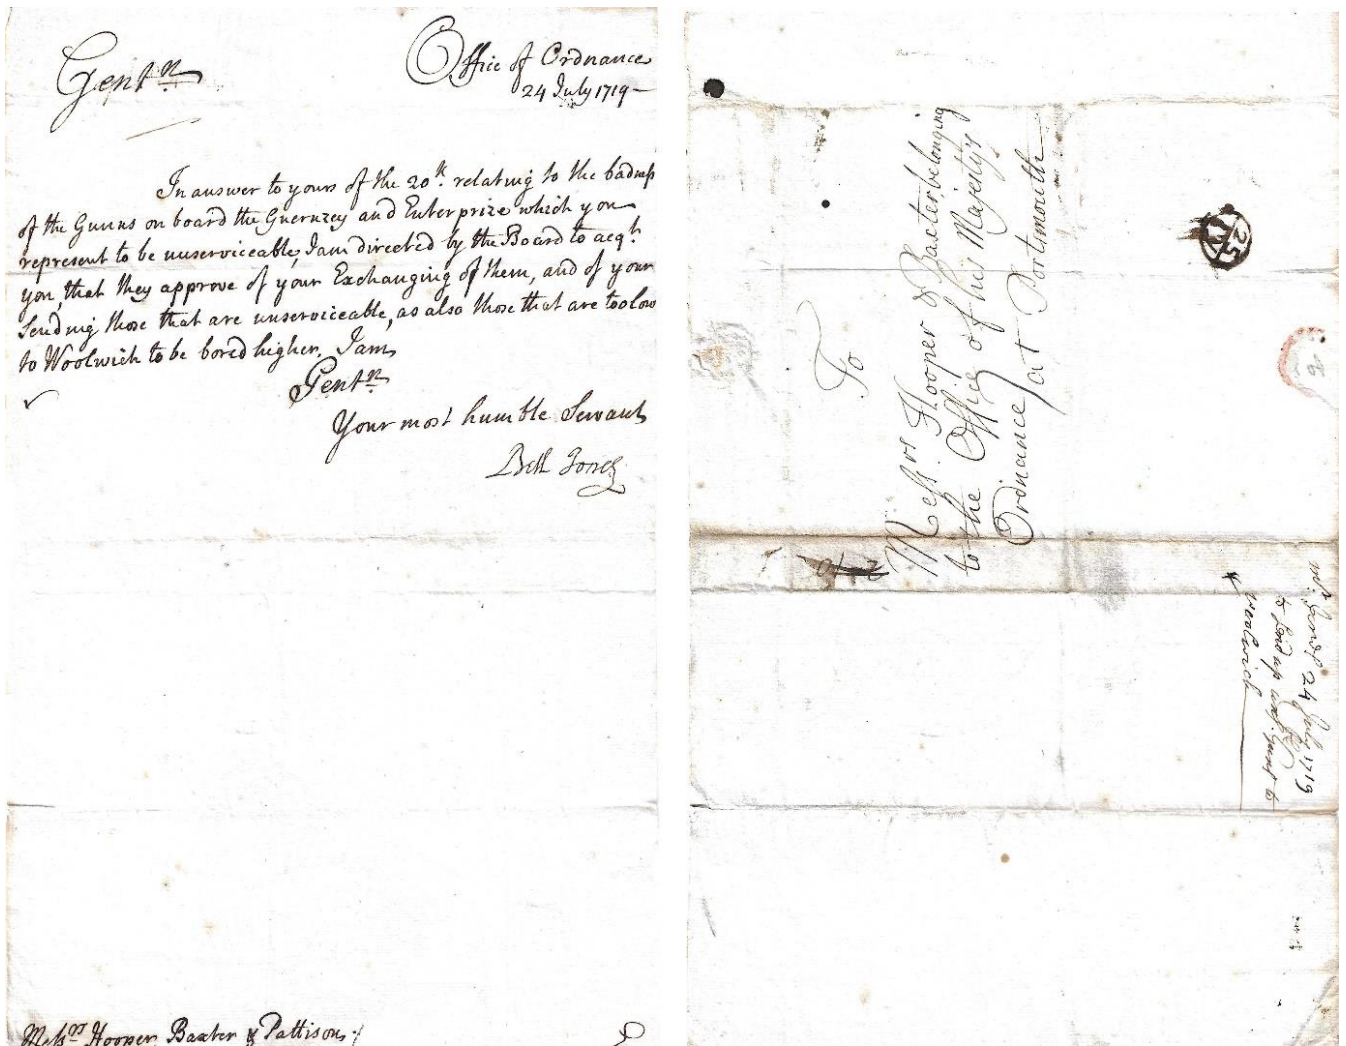 Office of Ordnance
24 July 1719
Gentⁿ.
In answer to yours of the 20ᵗʰ. relating to the badness
of the Gunns on board the Guernzey and Enterprize which you
represent to be unserviceable, I am directed by the Board to acqᵗ.
you, that they approve of your Exchanging of them, and of your
sending those that are unserviceable, as also those that are too low
to Woolwich to be bored higher. I am
Gentⁿ.
Your most humble Servant
Jones
Messʳˢ Hooper, Baxter & Pattison
To
Messʳˢ Hooper & Baxter belonging
to the Office of his Majestys
Ordnance at Portsmouth
25
IY
24 July 1719
to send up
Woolwich